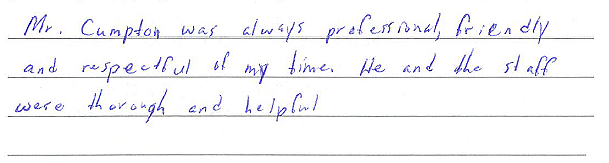 Mr. Cumpton was always professional, friendly
and respectful of my time. He and the staff
were thorough and helpful